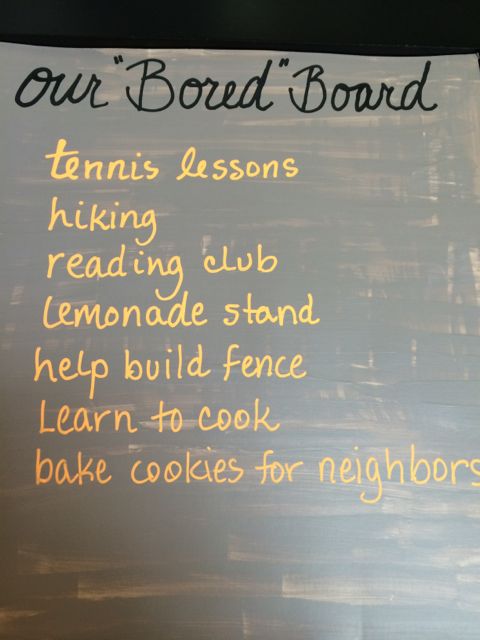 our "Bored" Board
tennis lessons
hiking
reading club
Lemonade stand
help build fence
Learn to cook
bake cookies for neighbors